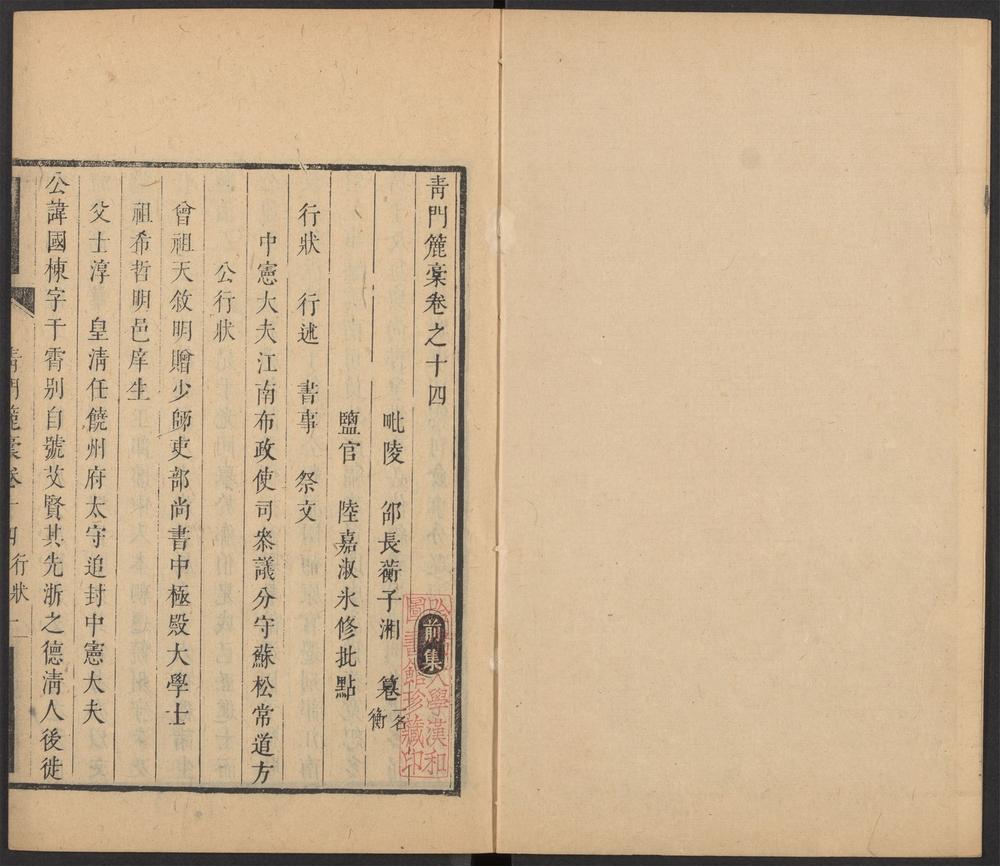 青門簏稾卷之十四
前集
毗陵 邵長蘅子湘 篹 一名衡
鹽官 陸嘉淑氷修批點
行狀 行述 書事 祭文
中憲大夫江南布政使司叅議分守蘇松常道方
公行狀
曾祖天敘明贈少師吏部尚書中極殿大學士
祖希哲明邑庠生
父士淳 皇清任饒州府太守追封中憲大夫
公諱國棟字干霄別自號艾賢其先浙之德清人後徙
青門簏稾卷十四 行狀 一
大學漢和
圖書館珍藏印